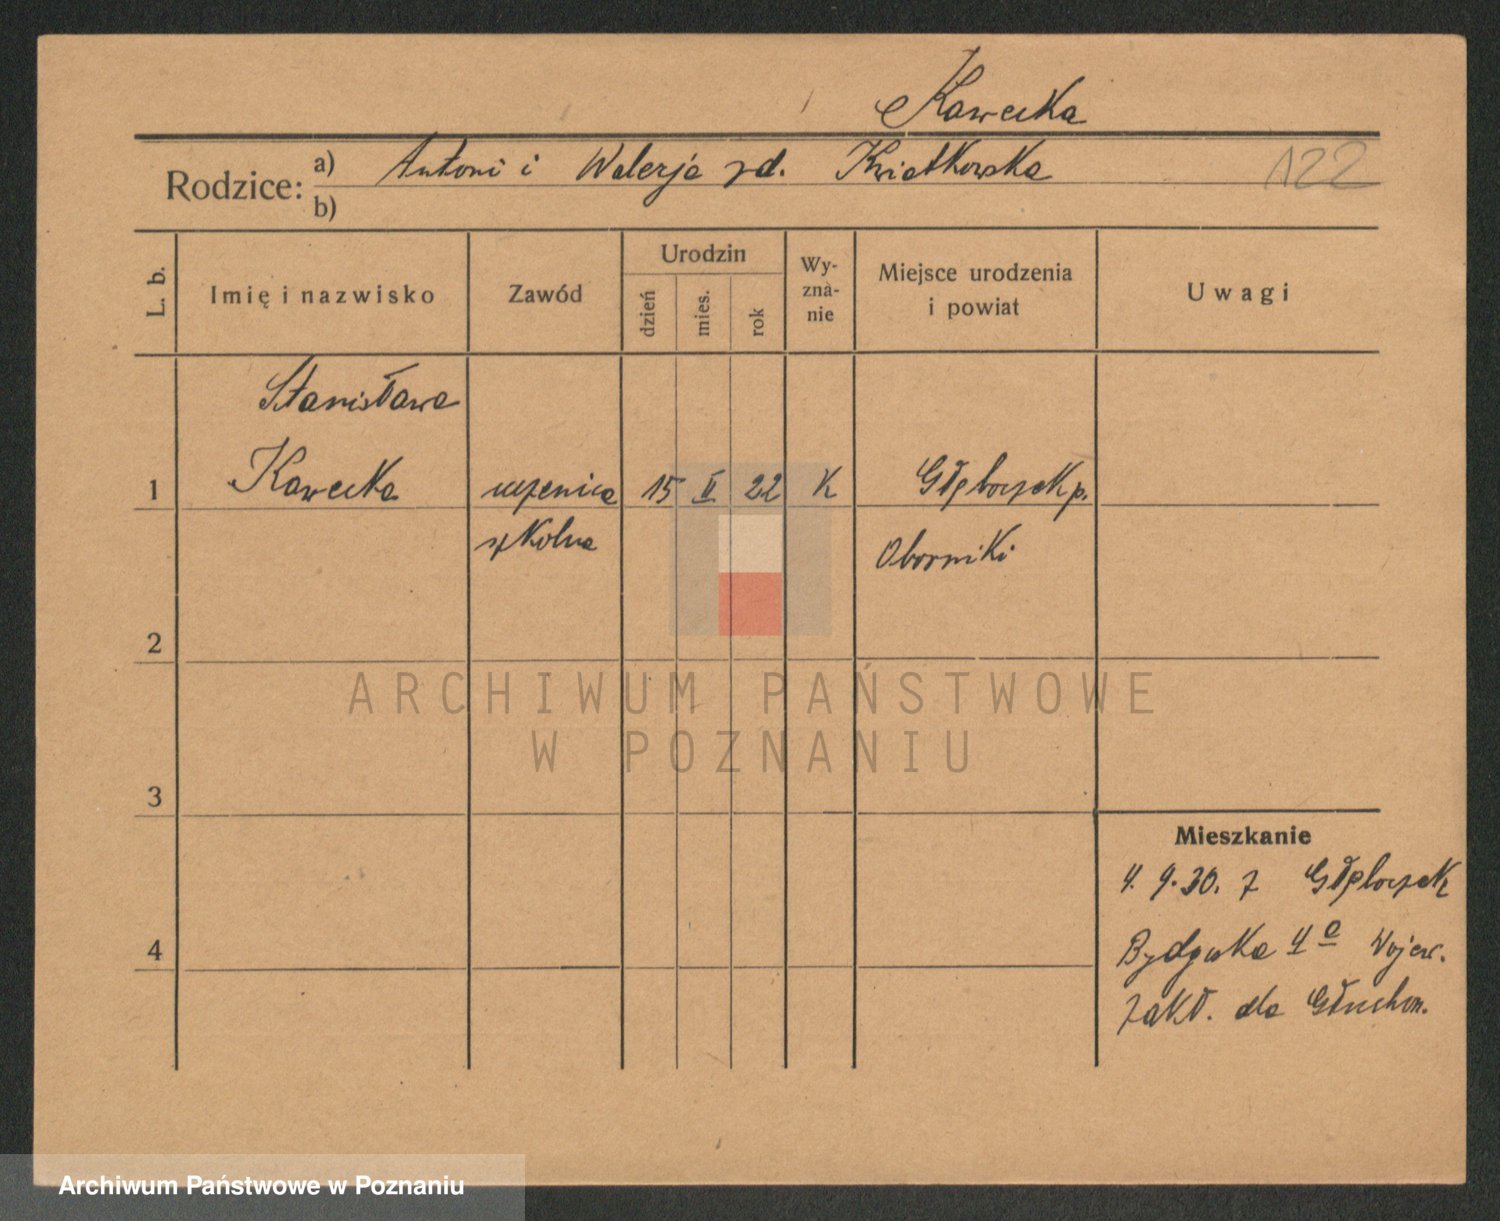 Kawecka
Rodzice: a) Antoni i Walerja zd. Kwiatkowska 122
b)
L. b. Imię i nazwisko Zawód Urodzin dzień mies. rok Wy-znà-nie Miejsce urodzenia i powiat Uwagi
Stanisława
1 Kawecka uczenica 15 II 22 K Głęboczek p.
szkolna Oborniki
2
ARCHIWUM PAŃSTWOWE
W POZNANIU
3
Mieszkanie
4. 9. 30. z Głęboczek
4 Bydgoska 4a Wojew.
Zakł. dla Głuchon.
Archiwum Państwowe w Poznaniu